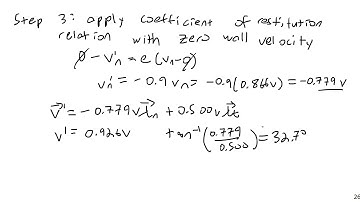 Step 3: apply coefficient of restitution
relation with zero wall velocity
0 - v'n = e (vn - 0)
v'n = - 0.9 vn = -0.9(0.866v) = -0.779 v
V⃗' = - 0.779 v i⃗n + 0.500 v i⃗t
v' = 0.926v tan⁻¹(0.779/0.500) = 32.7°
26